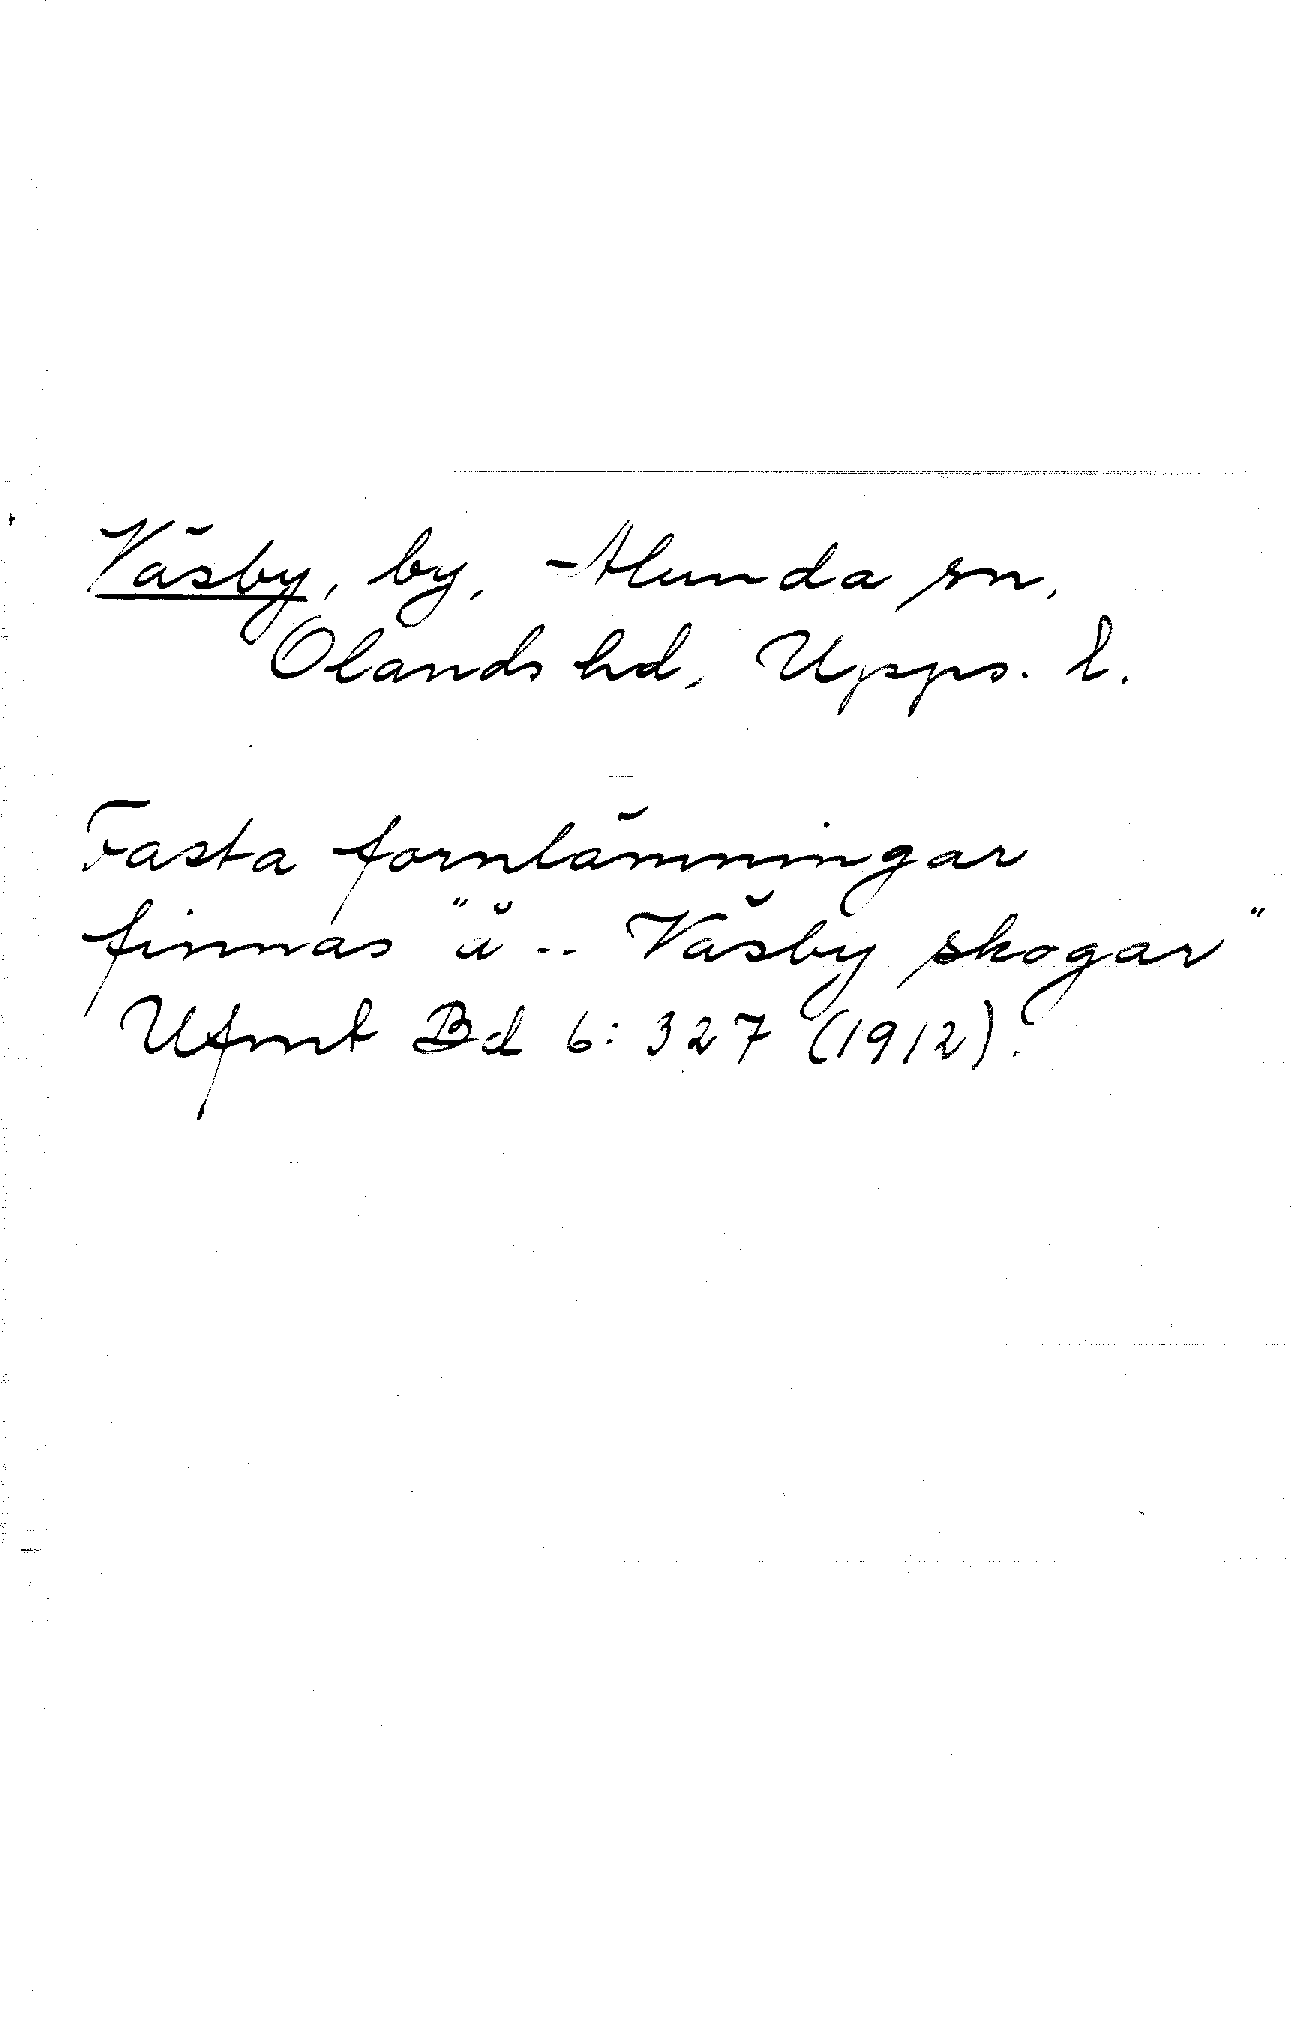 Väsby, by, Alunda sn,
Olands hd, Upps. l.
Fasta fornlämningar
finnas "å -- Väsby skogar"
Ufmt Bd 6: 327 (1912).